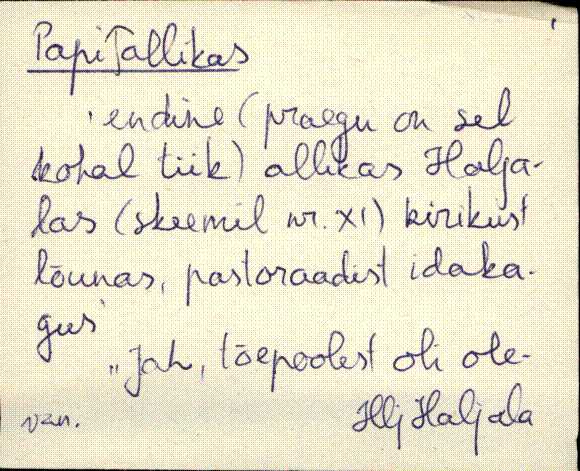 Papi allikas
endine (praegu on sel
kohal tiik) allikas Halja-
las (skeemil nr. XI) kirikust
lõunas, pastoraadist idaka-
gus
"Jah, tõepoolest oli ole-
van. Hlj Haljala